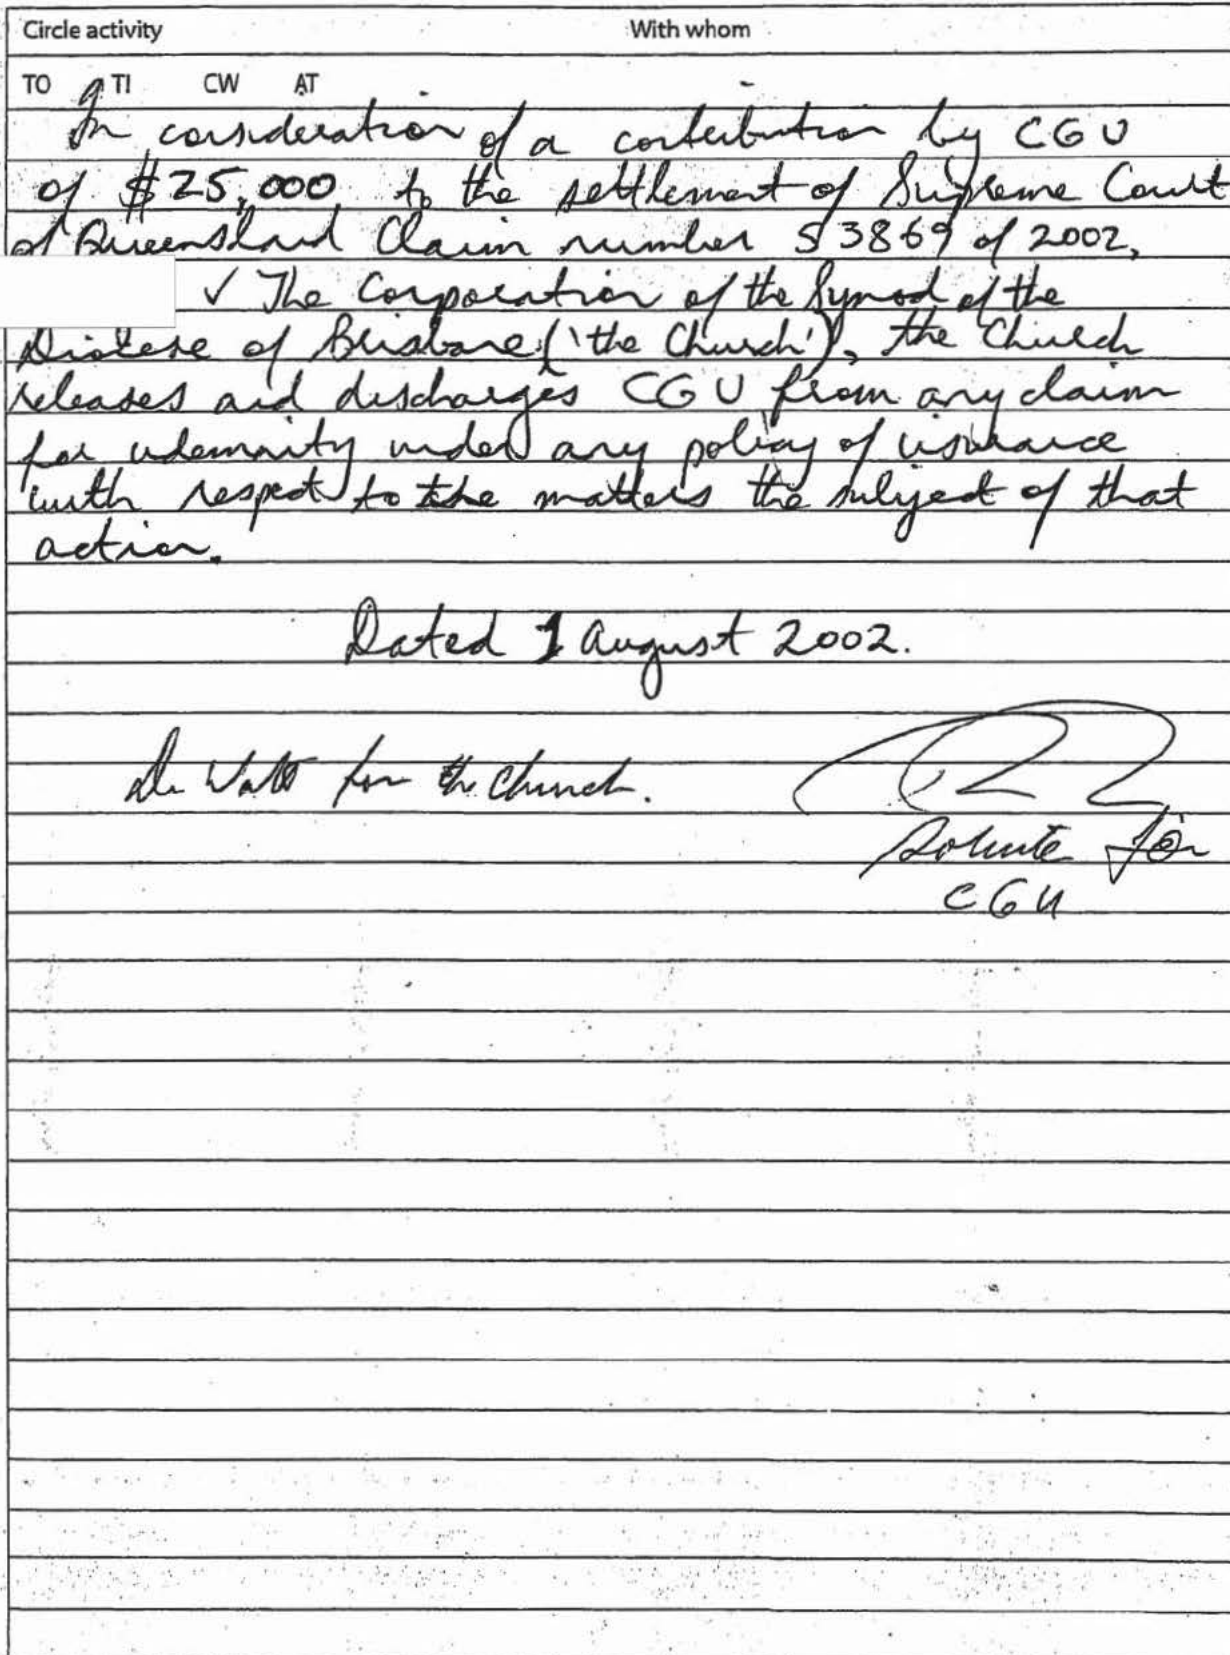 Circle activity With whom
TO TI CW AT
In consideration of a contribution by CGU
of $25,000 to the settlement of Supreme Court
of Queensland Claim number S3869 of 2002,
v The Corporation of the Synod of the
Diocese of Brisbane ('the Church'), the Church
releases and discharges CGU from any claim
for indemnity under any policy of insurance
with respect to the matters the subject of that
action.
Dated 1 August 2002.
for the Church.
for
CGU